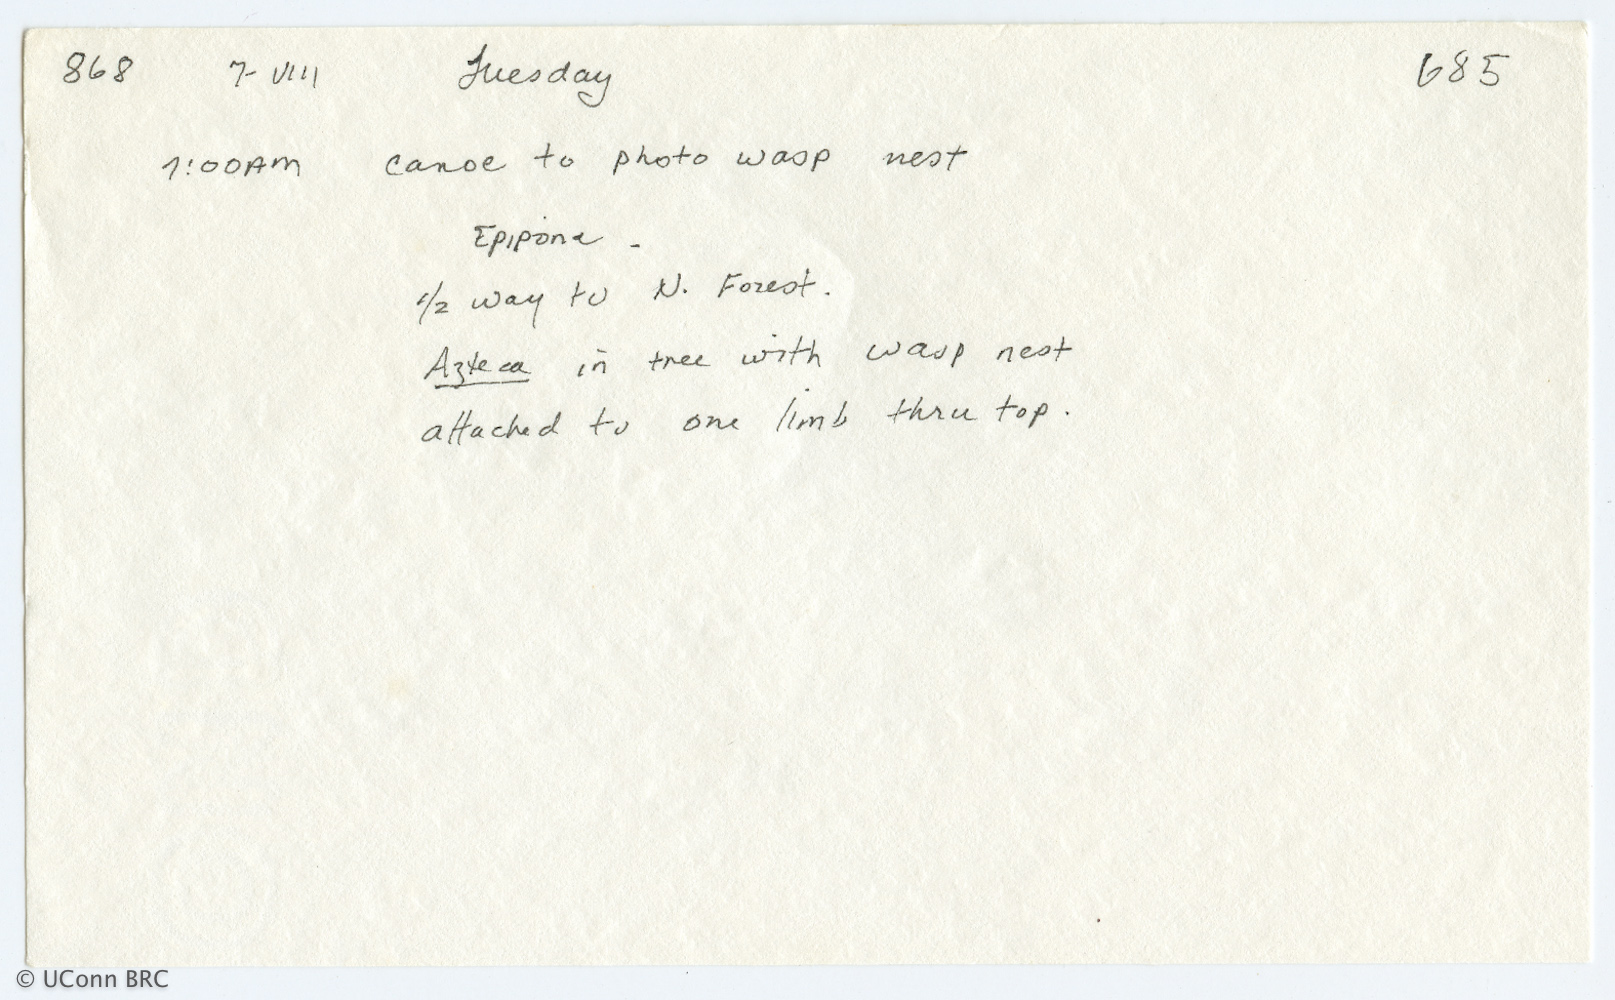 868 7-VIII Tuesday 685
7:00AM canoe to photo wasp nest
Epipona -
1/2 way to N. Forest.
Azteca in tree with wasp nest
attached to one limb thru top.
© UConn BRC